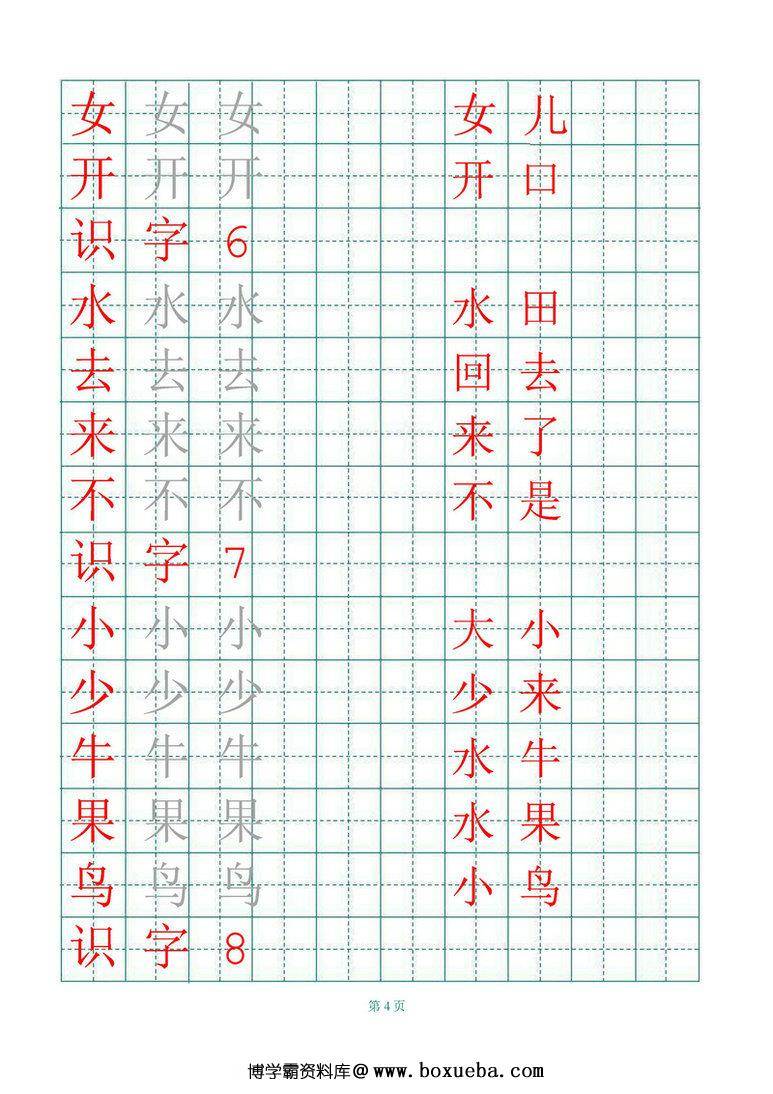 女 女 女 女 儿
开 开 开 开 口
识 字 6
水 水 水 水 田
去 去 去 回 去
来 来 来 来 了
不 不 不 不 是
识 字 7
小 小 小 大 小
少 少 少 少 来
牛 牛 牛 水 牛
果 果 果 水 果
鸟 鸟 鸟 小 鸟
识 字 8
第 4 页
博学霸资料库@ www.boxueba.com